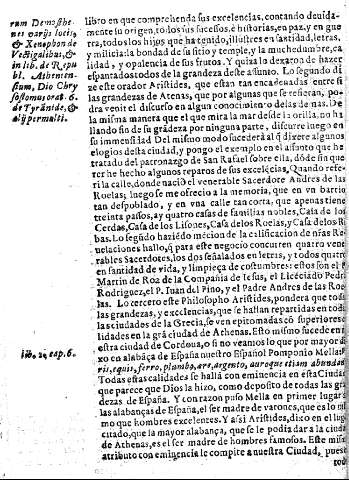 ram Demosthe-
nes varijs locis,
& Xenophon de
Vectigalibus, &
in lib. de Repu
bl. Athenien-
sium, Dio Chry
sostomus orat. 6.
de Tyranide, &
alij permulti.
lib. 2. cap. 6.
libro en que comprehenda sus excelencias, contando deuida-
mente su origen, todos los sucessos, è historias, en paz, y en gue
rra, todos los hijos que ha tenido, illustres en santidad, letras,
y milicia: la bondad de su sitio y temple, y la muchedumbre, ca
lidad, y opulencia de sus frutos. Y quiza lo dexaron de hazer
espantados todos de la grandeza deste assunto. Lo segundo di
ze este orador Aristides, que estan tan encadenadas entre si
las grandezas de Atenas, que por algunas que se refieran, po-
dra venir el discurso en algun conocimiento de las demas. De
la misma manera que el que mira la mar desde la orilla, no ha
llando fin de su grãdeza por ninguna parte, discurre luego en
su immensidad Del mismo modo sucederà al q̃ dixere algunos
elogios desta ciudad, y pongo el exemplo en el assunto que he
tratado del patronazgo de San Rafael sobre ella, dõde sin que
rer he hecho algunos reparos de sus excelẽcias, Quando refe-
ri la calle, donde naciò el venerable Sacerdote Andres de las
Roelas; luego se me ofrecio a la memoria, que en vn barrio
tan despoblado, y en vna calle tan corta, que apenas tiene
treinta passos, ay quatro casas de familias nobles, Casa de los
Cerdas, Casa de los Lisones, Casa de los Roelas, y Casa de los Ri-
bas. Lo segũdo hariẽdo mẽcion de la calificacion de nr̃as Re-
uelaciones hallo, q̃ para este negocio concurren quatro vene
rables Sacerdotes, los dos señalados en letras, y todos quatro
en santidad de vida, y limpieça de costumbres: estos son el P.
Martin de Roa de la Compañia de Iesus, el Licẽciado Pedro
Rodriguez, el P. Iuan del Pino, y el Padre Andres de las Roe
las. Lo tercero este Philosopho Aristides, pondera que todas
las grandezas, y excelencias, que se hallan repartidas en todas
las ciudades de la Grecia, se vẽn epitomadas cõ superiores
lidades en la grã ciudad de Athenas. Esto mismo sucede en
esta ciudad de Cordoua, o si no veamos lo que por mayor di-
xo en alabãça de España nuestro Español Pomponio Mella:
ris, equis, ferro, plumbo, ære, argento, auroque etiam abundans.
Todas estas calidades se hallã con eminencia en esta Ciudad,
que parece que Dios la hizo, como deposito de todas las grã
dezas de España. Y con razon puso Mella en primer lugar
las alabanças de España, el ser madre de varones, que es lo mis
mo que hombres excelentes. Y assi Aristides, dixo en el lugar
citado, que la mayor alabança, que se le podia dar a la ciudad
de Athenas, es el ser madre de hombres famosos. Este mismo
atributo con eminencia le compite a nuestra Ciudad, pues
tod